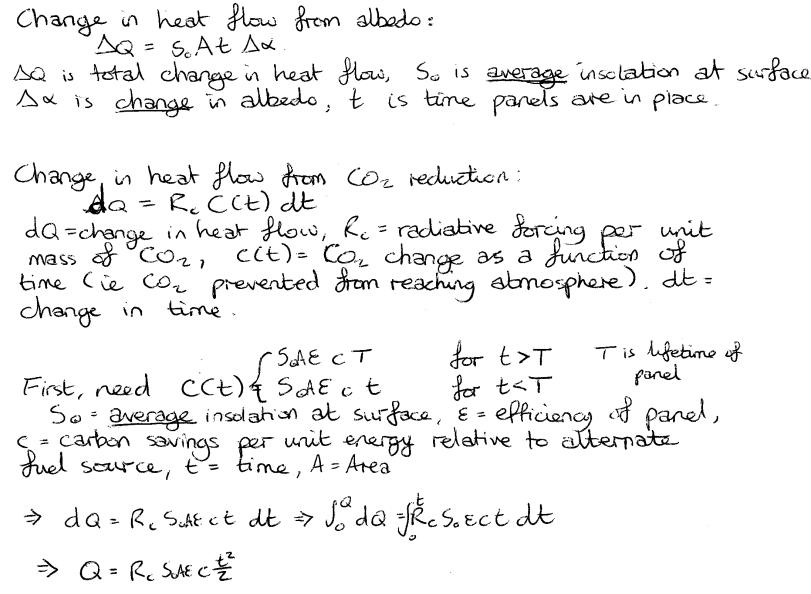 Change in heat flow from albedo:
ΔQ = S₀At Δα.
ΔQ is total change in heat flow, S₀ is average insolation at surface
Δα is change in albedo, t is time panels are in place.
Change in heat flow from CO₂ reduction:
dQ = R꜀ C(t) dt
dQ = change in heat flow, R꜀ = radiative forcing per unit
mass of CO₂, C(t) = CO₂ change as a function of
time (ie CO₂ prevented from reaching atmosphere). dt =
change in time.
First, need C(t) { S₀AƐ c T for t>T T is lifetime of panel
S₀AƐ c t for t<T
S₀ = average insolation at surface, ε = efficiency of panel,
c = carbon savings per unit energy relative to alternate
fuel source, t = time, A = Area
⇒ dQ = R꜀ S₀AƐ c t dt ⇒ ∫₀^Q dQ = ∫₀^t R꜀ S₀ ε c t dt
⇒ Q = R꜀ S₀AƐ c t²/2